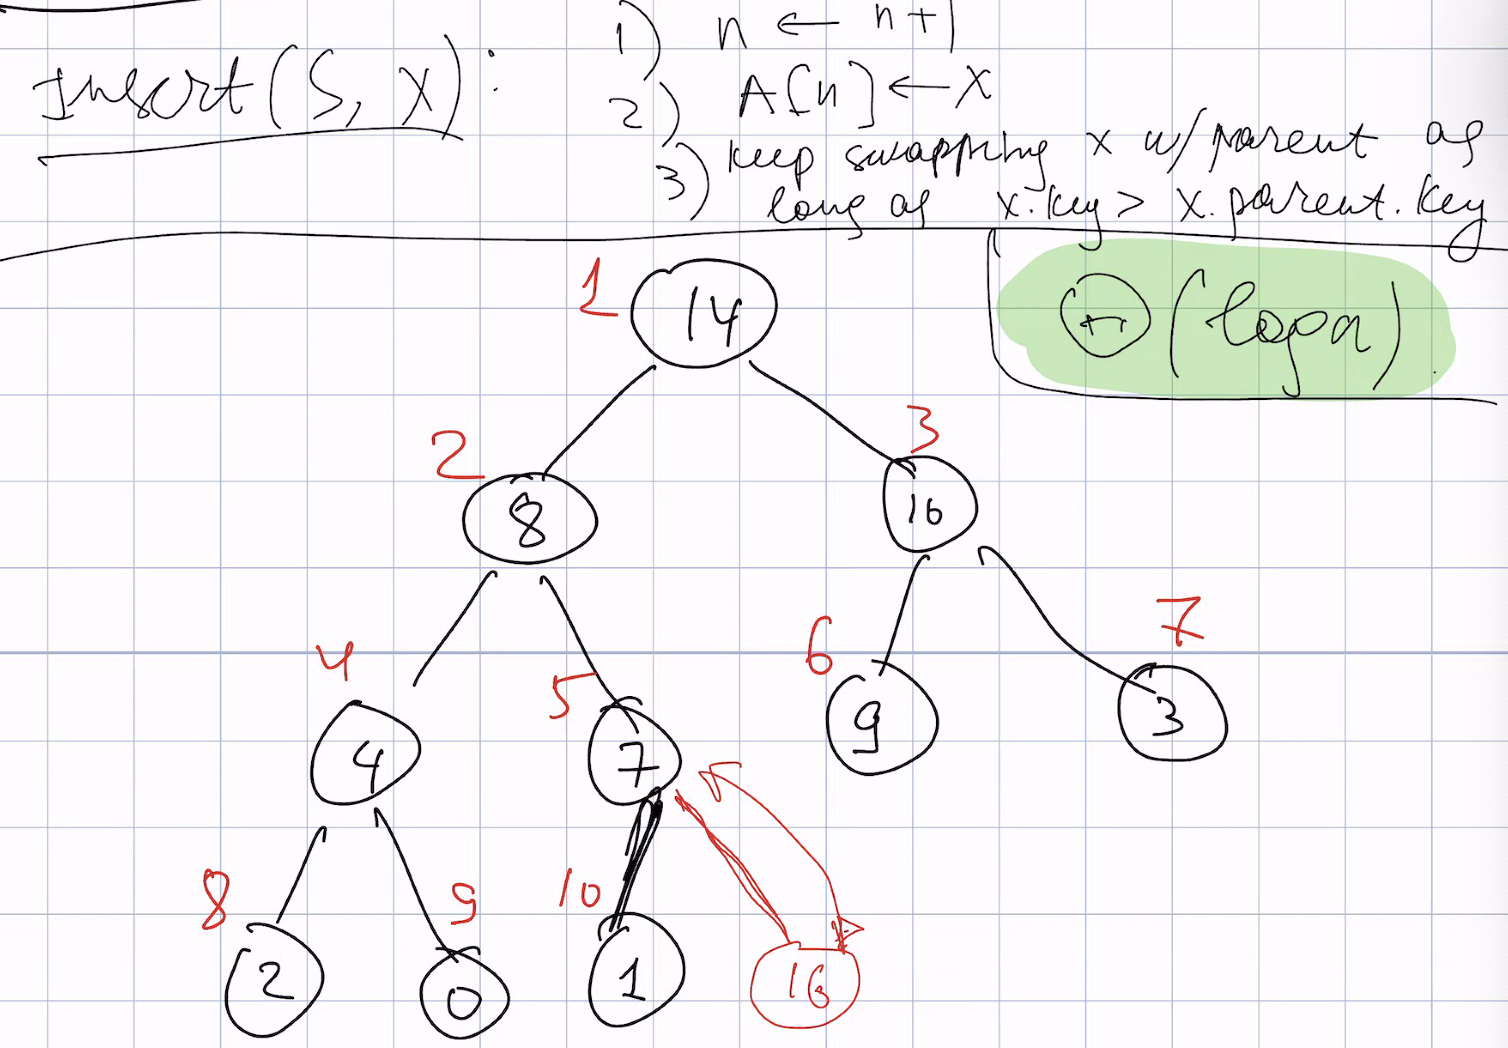 Insert(S, x):
1) n ← n+1
2) A[n] ← x
3) keep swapping x w/ parent as
long as x.key > x.parent.key
Θ(log n)
1
14
2
3
8
10
4
5
6
7
4
7
9
3
8
9
10
2
0
1
16